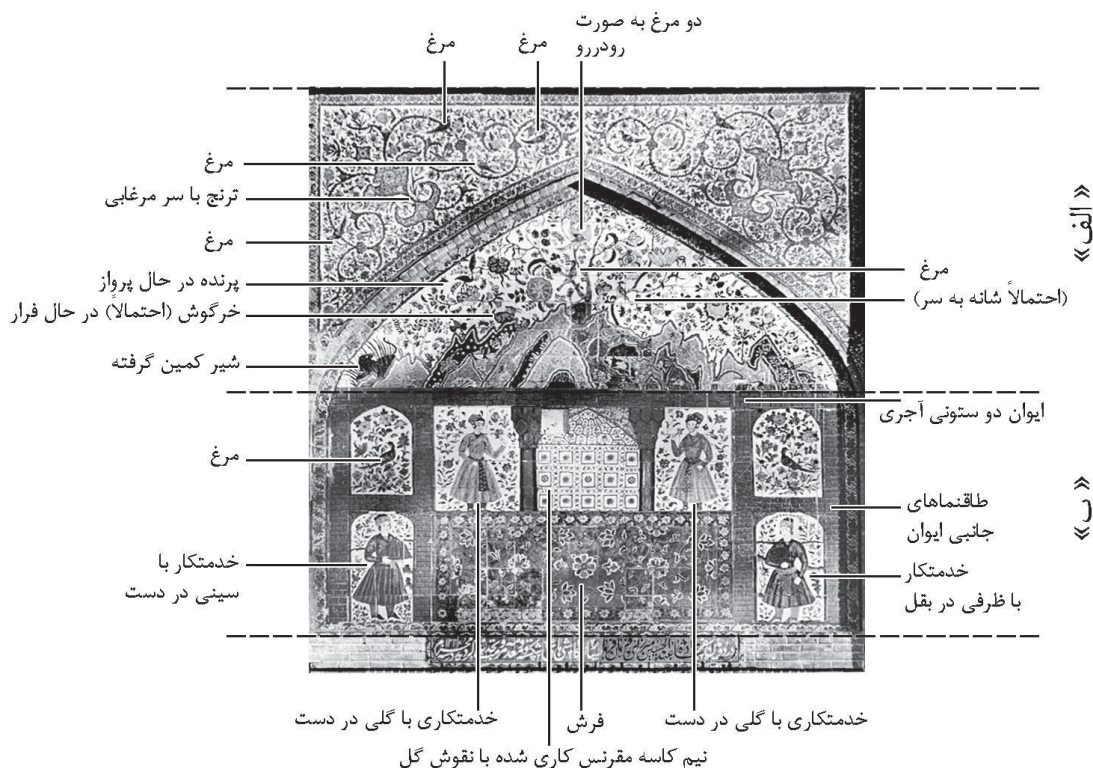 دو مرغ به صورت
رودررو
مرغ
مرغ
مرغ
ترنج با سر مرغابی
مرغ
پرنده در حال پرواز
خرگوش (احتمالاً) در حال فرار
شیر کمین گرفته
مرغ
(احتمالاً شانه به سر)
«الف»
ایوان دو ستونی آجری
مرغ
طاقنماهای
جانبی ایوان
«ب»
خدمتکار با
سینی در دست
خدمتکار
با ظرفی در بقل
خدمتکاری با گلی در دست
فرش
خدمتکاری با گلی در دست
نیم کاسه مقرنس کاری شده با نقوش گل